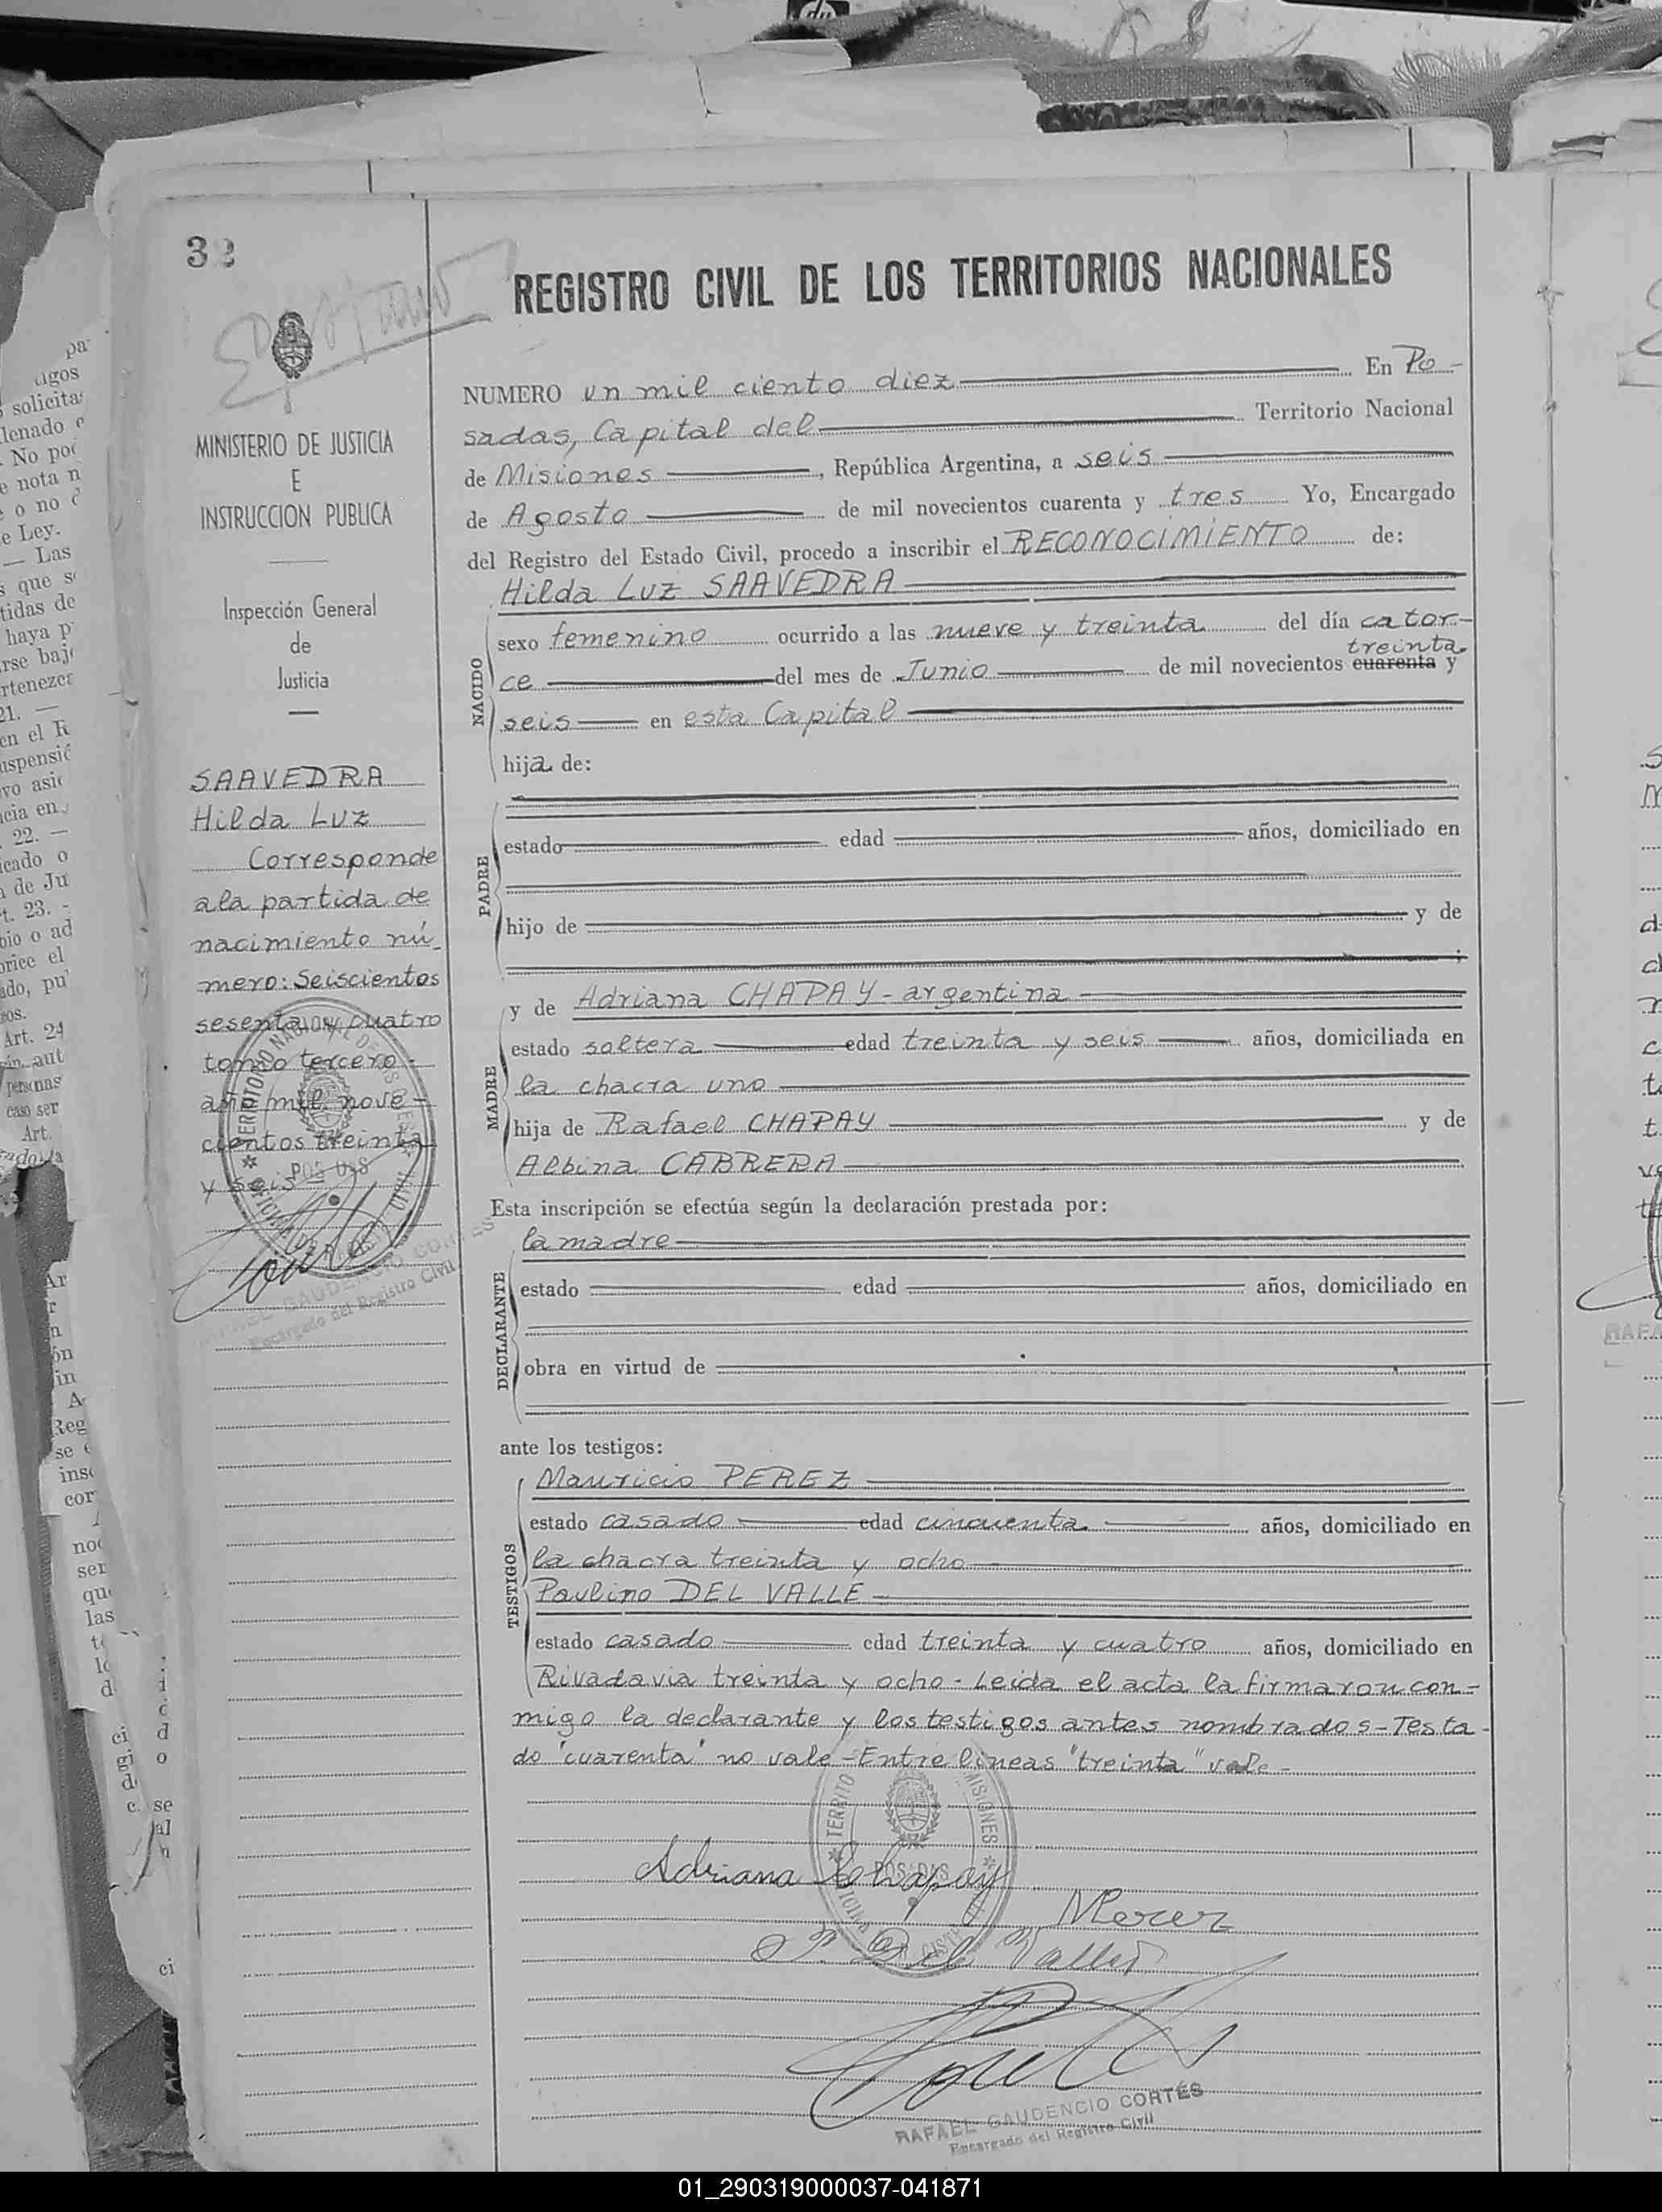 32
REGISTRO CIVIL DE LOS TERRITORIOS NACIONALES
MINISTERIO DE JUSTICIA
E
INSTRUCCION PUBLICA
Inspección General
de
Justicia
SAAVEDRA
Hilda Luz
Corresponde
a la partida de
nacimiento nú-
mero: Seiscientos
sesenta y cuatro
tomo tercero-
año mil nove-
cientos treinta
y seis
RAFAEL GAUDENCIO CORTES
Encargado del Registro Civil
NUMERO un mil ciento diez En Po-
sadas, Capital del Territorio Nacional
de Misiones, República Argentina, a seis
de Agosto de mil novecientos cuarenta y tres Yo, Encargado
del Registro del Estado Civil, procedo a inscribir el RECONOCIMIENTO de:
Hilda Luz SAAVEDRA
NACIDO
sexo femenino ocurrido a las nueve y treinta del día cator-
treinta
ce del mes de Junio de mil novecientos cuarenta y
seis en esta Capital
hija de:
PADRE
estado edad años, domiciliado en
hijo de y de
;
MADRE
y de Adriana CHAPAY - argentina
estado soltera edad treinta y seis años, domiciliada en
la chacra uno
hija de Rafael CHAPAY y de
Albina CABRERA
Esta inscripción se efectúa según la declaración prestada por:
DECLARANTE
la madre
estado edad años, domiciliado en
obra en virtud de
ante los testigos:
TESTIGOS
Mauricio PEREZ
estado casado edad cincuenta años, domiciliado en
la chacra treinta y ocho
Paulino DEL VALLE
estado casado edad treinta y cuatro años, domiciliado en
Rivadavia treinta y ocho - Leida el acta la firmaron con-
migo la declarante y los testigos antes nombrados - Testa-
do "cuarenta" no vale - Entre líneas "treinta" vale -
Adriana Chapay
MPerez
P. Del Valle
POSADAS
RAFAEL GAUDENCIO CORTÉS
Encargado del Registro Civil
01_290319000037-041871